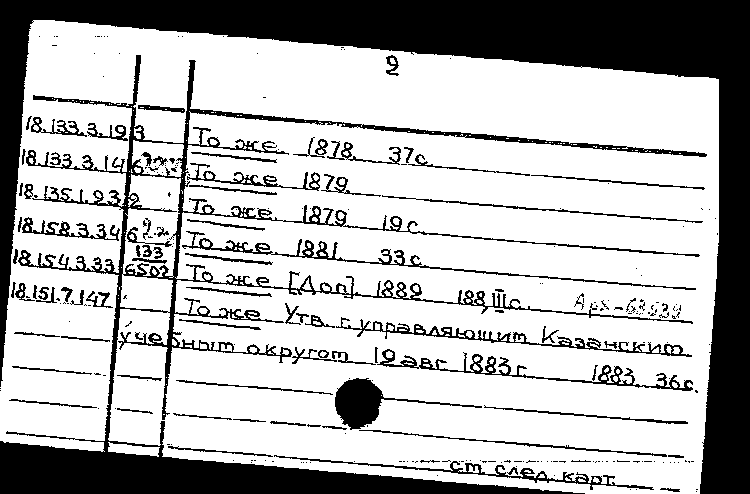 2
18.133.3.193 То же. 1878. 37с.
18.133.3.146 То же 1879.
18.135.1.232 То же 1879 19с.
18.158.3.346 То же 1881. 33с.
18.154.3.33 133 6502 То же [Доп]. 1882 188, III с. Арх-63539
18.151.7.147 То же. Утв. г. управляющим Казанским
учебным округом 19 авг 1883г. 1883. 36с.
см след. карт.